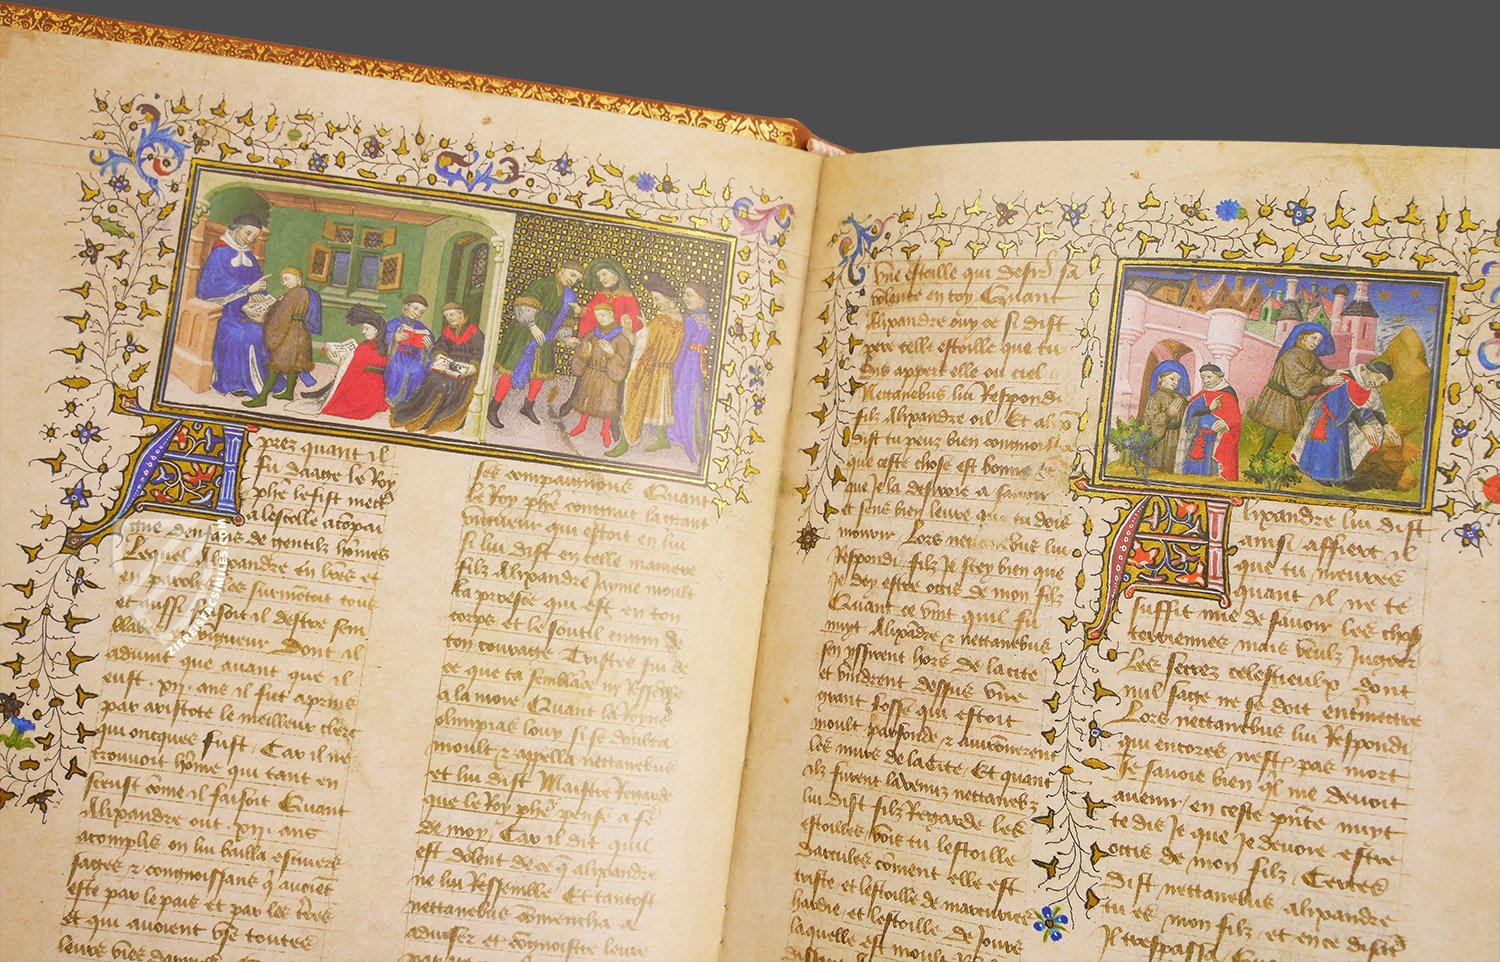 Aprez quant il
fu daage le Roy
phe le fist mectre
a lescolle acōpai
gne denfans de gentilz hōmes
Lequel Alixandre en lrēs et
en parolles surmōtoit tous
et aussi faisoit il destre sen
blable vigueur Dont al
aduint que auant que il
eust .xii. ans il fut aprins
par aristote le meilleur clerc
qui oncques fust. Car il ne
trouuoit hōme qui tant en
sceust cōme il faisoit Quant
Alixandre out .xii. ans
acomplis on lui bailla escuiers
sages et congnoissans qi auoiēt
este par le pais et par les tr̄es
et qui auoient vse toutes
leurs vies
ses compaignons. Quant
le Roy phē congnut la grant
vigueur qui estoit en lui
si lui dist en telle maniere
filz Alixandre Jayme moult
la proesce qui est en ton
corps et le soutil engin de
ton courage Tristre sui de
ce que ta semblāce ne Resēble
a la moie Quant la Royne
olimpias louy si se doubta
moult et appella nettanebus
et lui dist Maistre Regarde
que le Roy phē pense a fē
de moy. Car il dit quil
est dolent de ce q̄ alixandre
ne lui Ressemble Et tantost
nettanebus cōmencha a
aduiser et cōgnoistre leure
vne estoille qui desire sa
volente en toy Quant
Alixandre ouy ce si dist
pere celle estoille que tu
dis appert elle ou ciel
Nettanebus lui Respondi
filz Alixandre oil. Et alix̄
dist tu peuz bien congnoistre
que ceste chose est bonne
que Je la desiroie a sauoir
et scus bien leure que tu dois
mourir. Lors nettanebus lui
Respondi filz Je scey bien que
Je doy estre occis de mon filz
Quant ce vint quil fu
nuyt Alixandre et nettanebus
sen yssirent hors de la cite
et vindrent dessus vne
grant fosse qui estoit
moult parfonde et auironnerent
les murs de la cite. Et quant
ilz furent la venuz nettanebz
lui dist filz Regarde les
estoilles vois tu lestoille
darcules cōment elle est
triste et lestoille de mercurius
hardie et lestoille de Jouis
laquelle est moult
Alixandre lui dist
ainsi affiert il
que tu meures
quant il ne te
suffit mie de sauoir les choses
terriennes mais veulz Jugier
Les secrez celestieulx dont
nul sage ne se doit entmettre
Lors nettanebus lui Respondi
qui encores nest pas mort
Je sauoie bien ql me deuoit
auenir. en ceste pn̄te nuyt
te dis Je que Je deuoie estre
occis de mon filz. Certes
dist nettanebus alixandre
tu es mon filz. et en ce disāt
Il trespassa.
ZIEREIS FACSIMILES